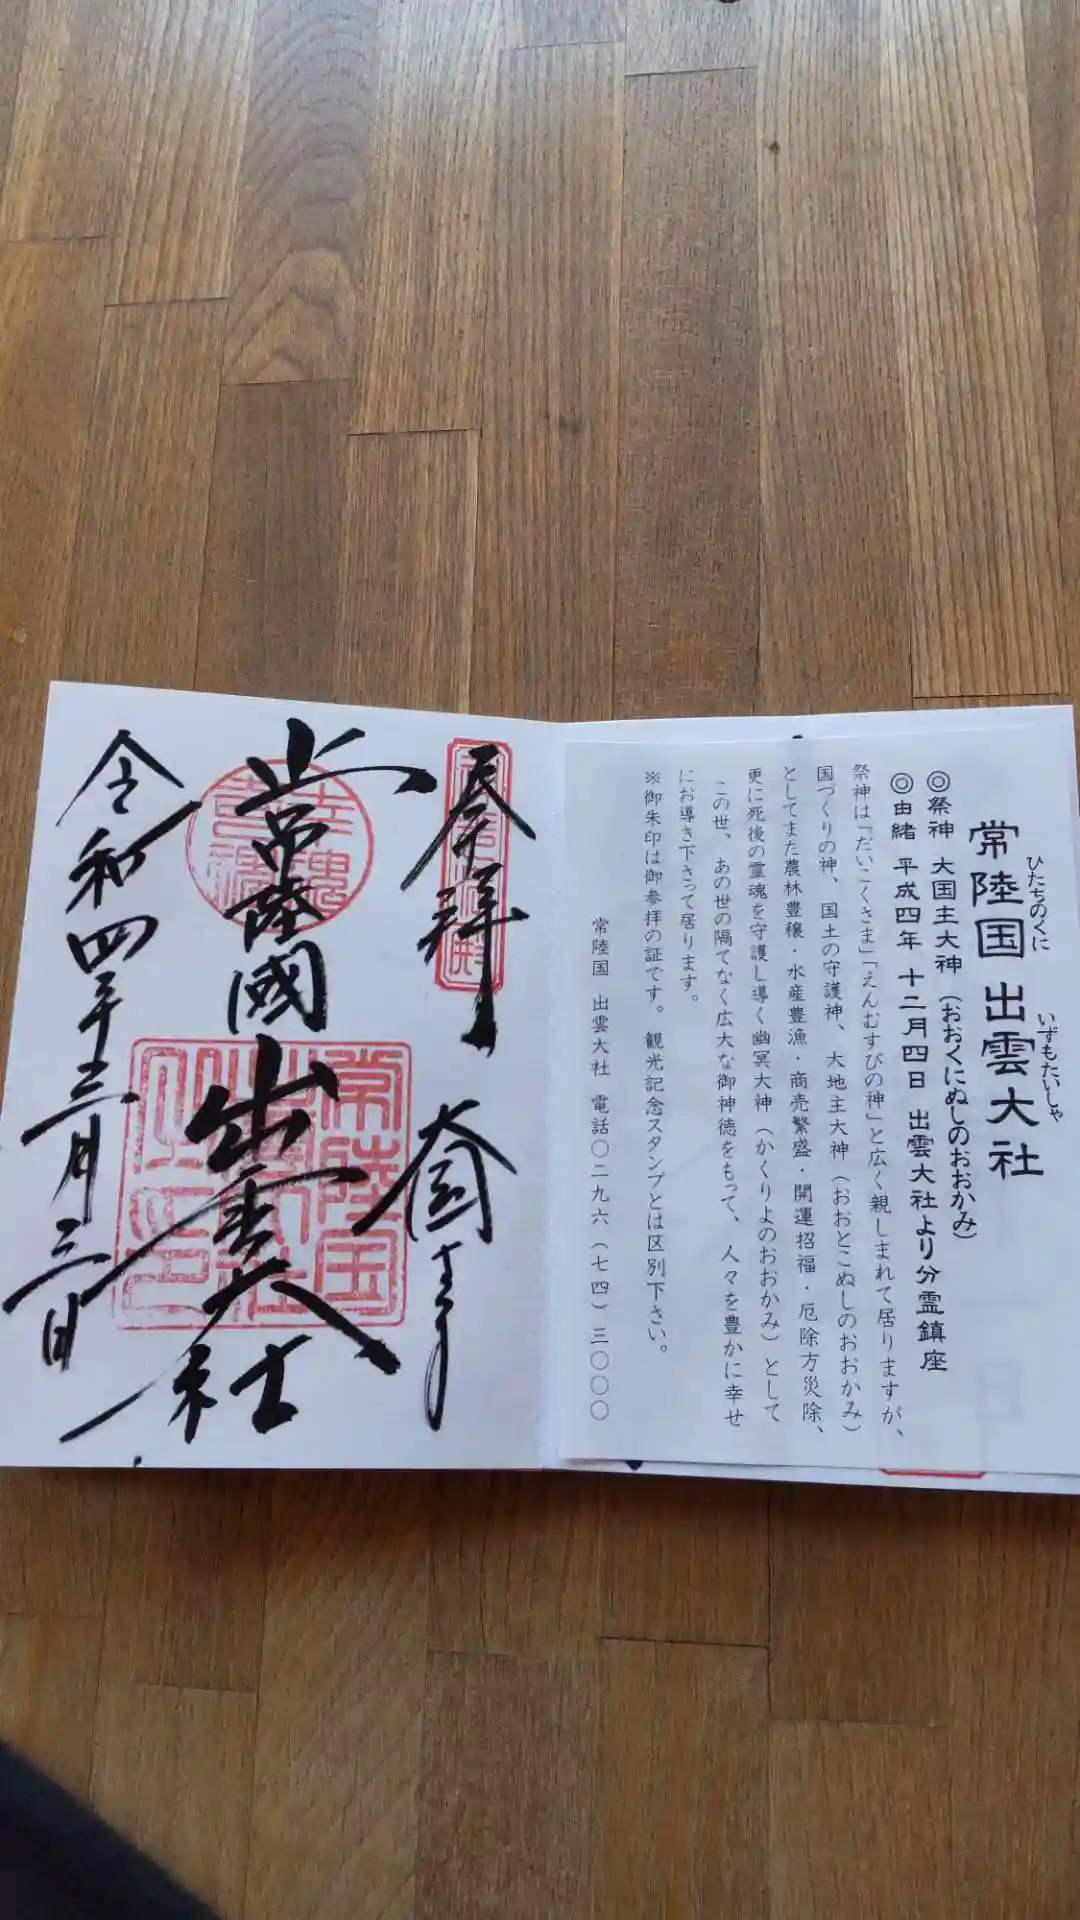 常陸国 出雲大社
ひたちのくに いずもたいしゃ
◎祭神 大国主大神(おおくにぬしのおおかみ)
◎由緒 平成四年 十二月四日 出雲大社より分霊鎮座
祭神は「だいこくさま」「えんむすびの神」と広く親しまれて居りますが、
国づくりの神、国土の守護神、大地主大神(おおとこぬしのおおかみ)
としてまた農林豊穣・水産豊漁・商売繁盛・開運招福・厄除方災除、
更に死後の霊魂を守護し導く幽冥大神(かくりよのおおかみ)として
この世、あの世の隔てなく広大な御神徳をもって、人々を豊かに幸せ
にお導き下さって居ります。
※御朱印は御参拝の証です。観光記念スタンプとは区別下さい。
常陸国 出雲大社 電話〇二九六(七四)三〇〇〇
奉拝
常陸國出雲大社
常陸国
令和四年三月三日